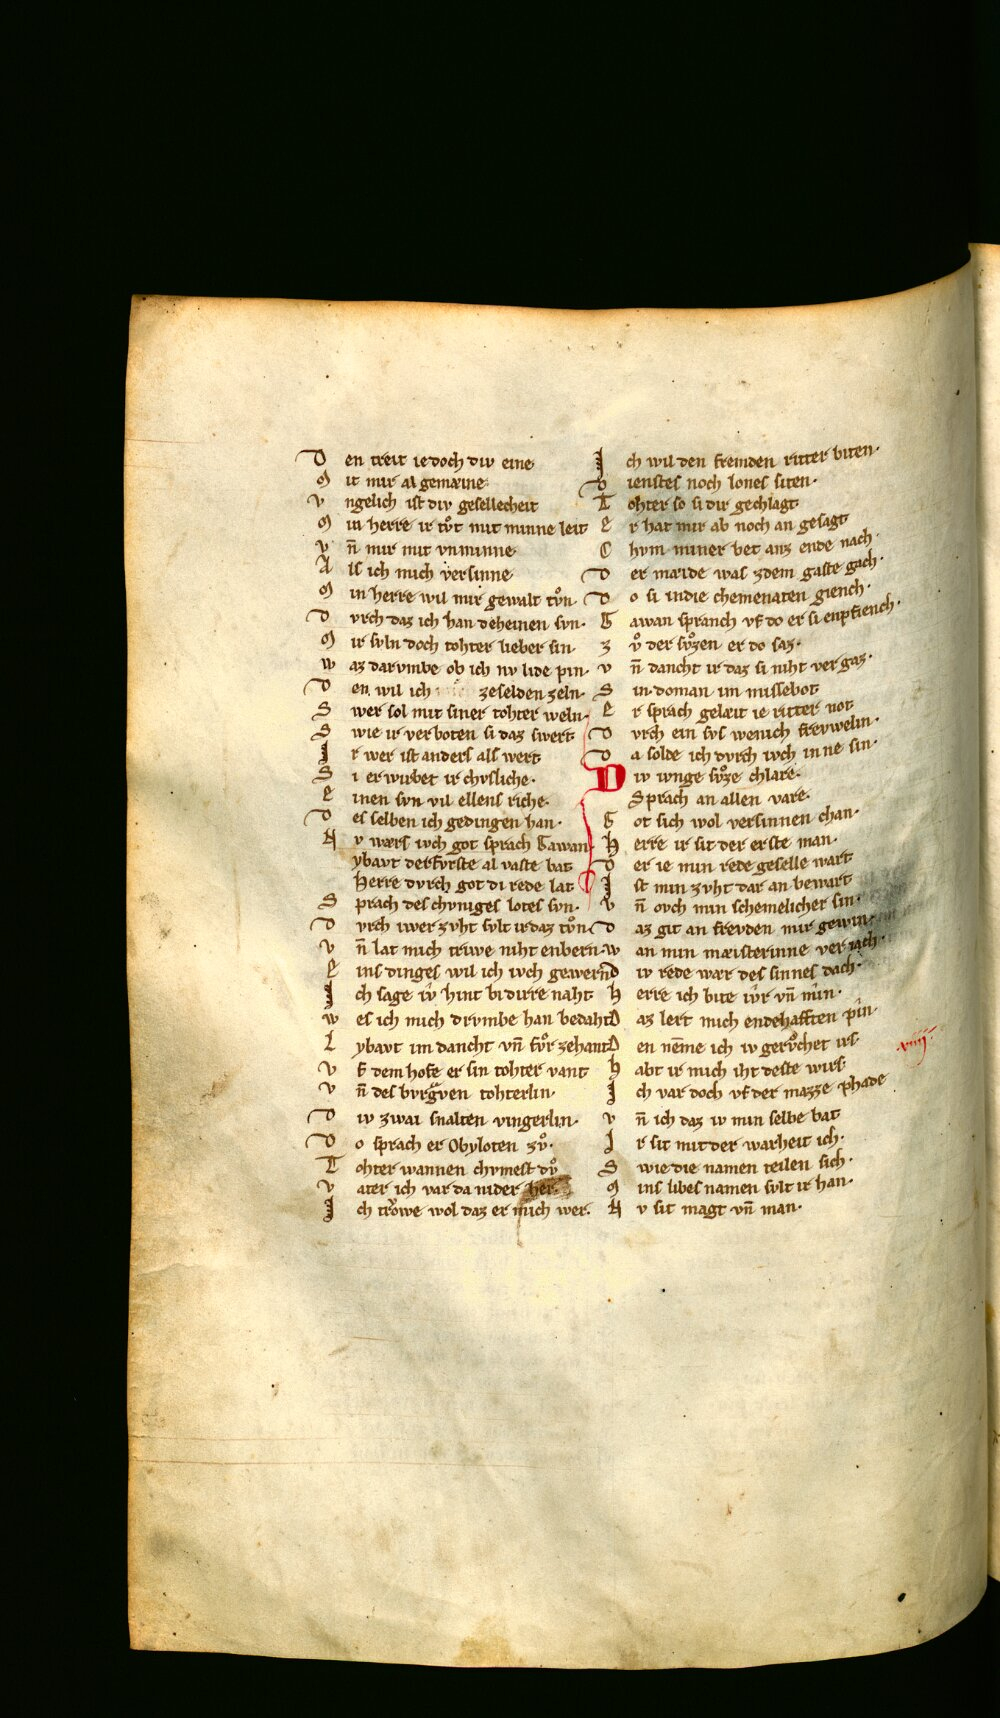 D en treit iedoch div eine
M it mir al gemæine
V ngelich ist div gesellecheit
M in herre ir tv̊t mit minne leit
V n̄ mir mit vnminne
A ls ich mich versinne
M in herre wil mir gewalt tv̊n
D vrch daz ich han deheinen svn·
M ir svln doch tohter lieber sin·
W az darvmbe ob ich nv lide pin·
D en wil ich zeselden zeln·
S wer sol mit siner tohter weln·
S wie ir verboten si daz swert
I r wer ist anders als wert
S i erwirbet ir chvsliche·
E inen svn vil ellens riche·
D es selben ich gedingen han·
N v wers iwch got sprach Gawan
Lybavt der fvrste al vaste bat
Herre dvrch got di rede lat
S prach des chvniges lotes svn·
D vrch iwer zvht svlt irdaz tv̊n
V n̄ lat mich triwe niht enbern·
E ins dinges wil ich iwch gewern
I ch sage iv̂ hint bi dirre naht
W es ich mich drvmbe han bedaht
L ybavt im dancht vn̄ fv̊r zehant
V f dem hofe er sin tohter vant
V n̄ des bvrgraven tohterlin·
D iv zwai snalten vingerlin·
D o sprach er Obyloten zv̊·
T ohter wannen chvmest dv̊
V ater ich var da nider her·
I ch trowe wol daz er mich wer·
I ch wil den fremden ritter biten·
D ienstes noch lones siten·
T ohter so si dir gechlagt
E r hat mir ab noch an gesagt
C hvm miner bet anz ende nach
D er mæide was zdem gaste gach·
D o si indie chemenaten giench·
G awan spranch vf do er si enpfiench·
Z v̊ der sv̊zen er do saz·
V n̄ dancht ir daz si niht vergaz·
S in doman im missebot
E r sprach gelæit ie ritter not
D vrch ein svs wenich frevwelin·
D a solde ich dvrch iwch inne sin·
D iv ivnge sv̊ze chlare·
Sprach an allen vare·
G ot sich wol versinnen chan·
H erre ir sit der erste man·
D er ie min rede geselle wart
I st min zvht dar an bewart
V n̄ ovch min schemelicher sin·
D az git an frevden mir gewin·
W an min mæisterinne veriach·
D iv rede wær des sinnes dach·
H erre ich bite iv̂r vn̄ min·
D az lert mich endehafften pin·
D en nēme ich iv gerv̊chet irs
H abt ir mich iht deste wirs
I ch var doch vf der mazze phade
V n̄ ich daz iv min selbe bat
I r sit mit der warheit ich·
S wie die namen teilen sich·
M ins libes namen svlt ir han·
N v sit magt vn̄ man·